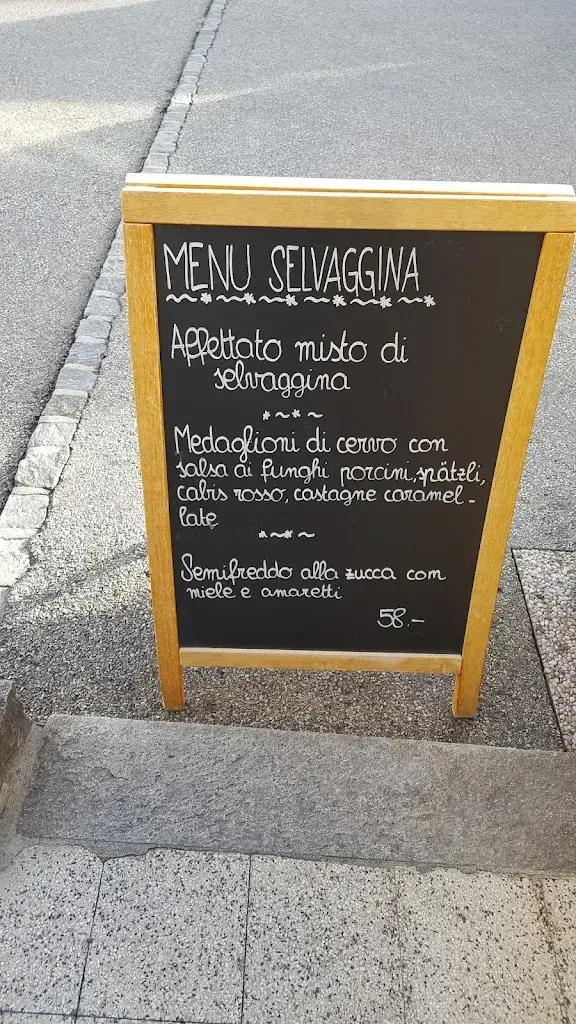 MENU SELVAGGINA
Affettato misto di
selvaggina
Medaglioni di cervo con
salsa ai funghi porcini, spätzli,
cabis rosso, castagne caramel-
late
Semifreddo alla zucca con
miele e amaretti
58.-